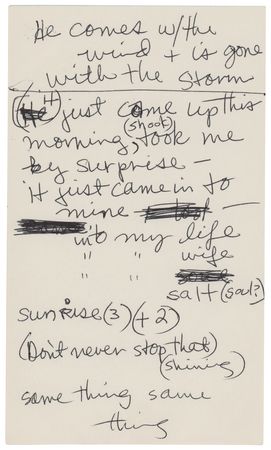 He comes w/the
wind + is gone
with the storm
(It) just came up this
morning, (shook) took me
by surprise –
it just came in to
mine
into my life
" " wife
salt (sad?)
sunrise (3) (+2)
(Don't never stop that)
(shining)
same thing same
thing